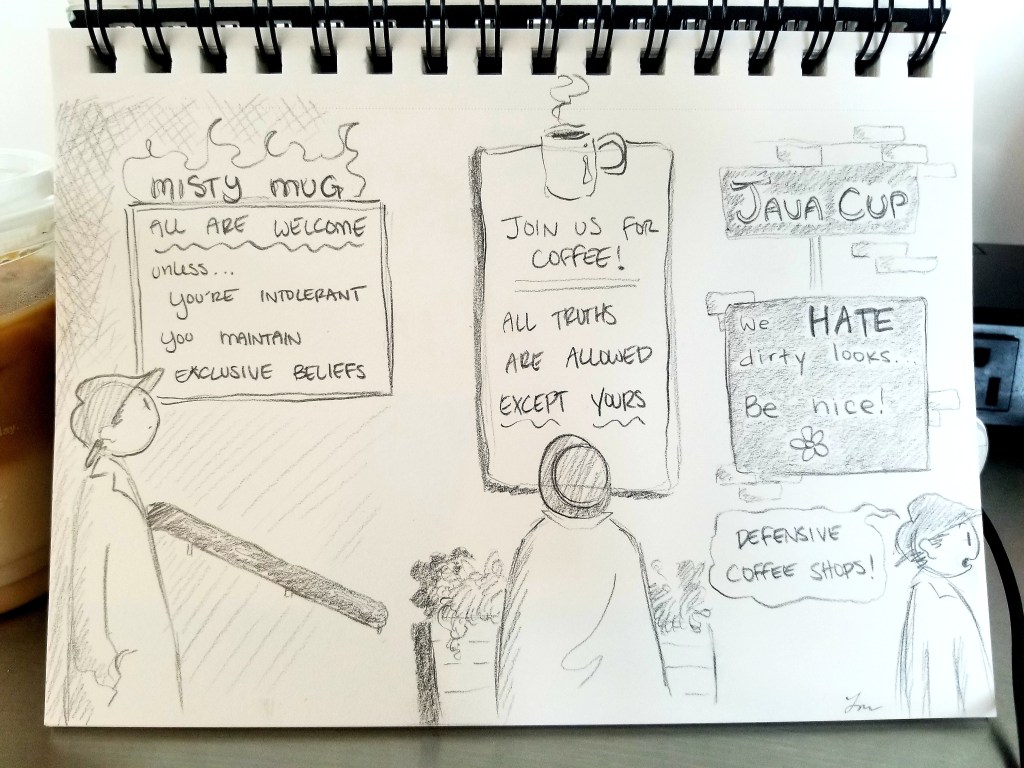 MISTY MUG
ALL ARE WELCOME
unless...
YOU'RE INTOLERANT
YOU MAINTAIN
EXCLUSIVE BELIEFS
JOIN US FOR
COFFEE!
ALL TRUTHS
ARE ALLOWED
EXCEPT YOURS
JAVA CUP
We HATE
dirty looks..
Be nice!
DEFENSIVE
COFFEE SHOPS!